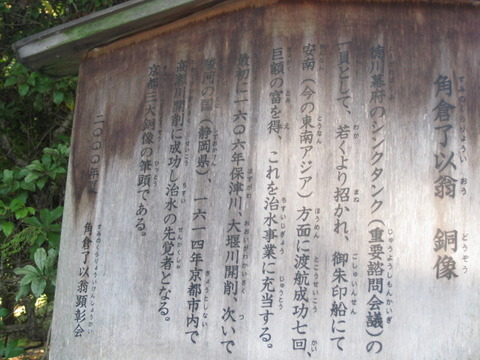 角倉了以翁 銅像
徳川幕府のシンクタンク(重要諮問会議)の
一員として、若くより招かれ、御朱印船にて
安南(今の東南アジア)方面に渡航成功七回、
巨額の富を得、これを治水事業に充当する。
最初に一六〇六年保津川、大堰川開削、次いで
駿河の国(静岡県)、一六一四年京都市内で
高瀬川開削に成功し治水の先覚者となる。
京都三大銅像の筆頭である。
二〇〇〇年
角倉了以翁顕彰会